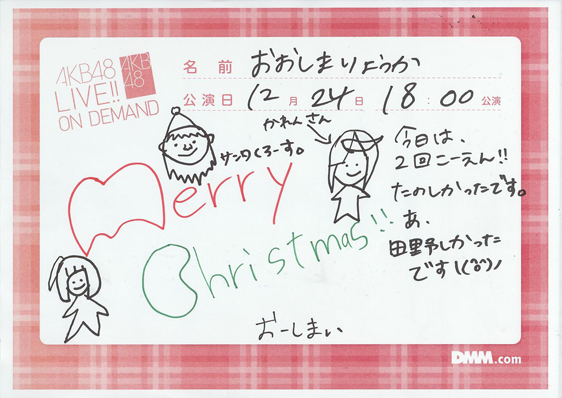 AKB48
LIVE!!
ON DEMAND
AKB
48
名前 おおしまりょうか
公演日 12月24日 18:00公演
かれんさん
サンタくろーす。
Merry
Christmas!!
今日は、
2回こーえん!!
たのしかったです。
あ、
田野しかった
です\(^o^)ノ
おーしまい
DMM.com